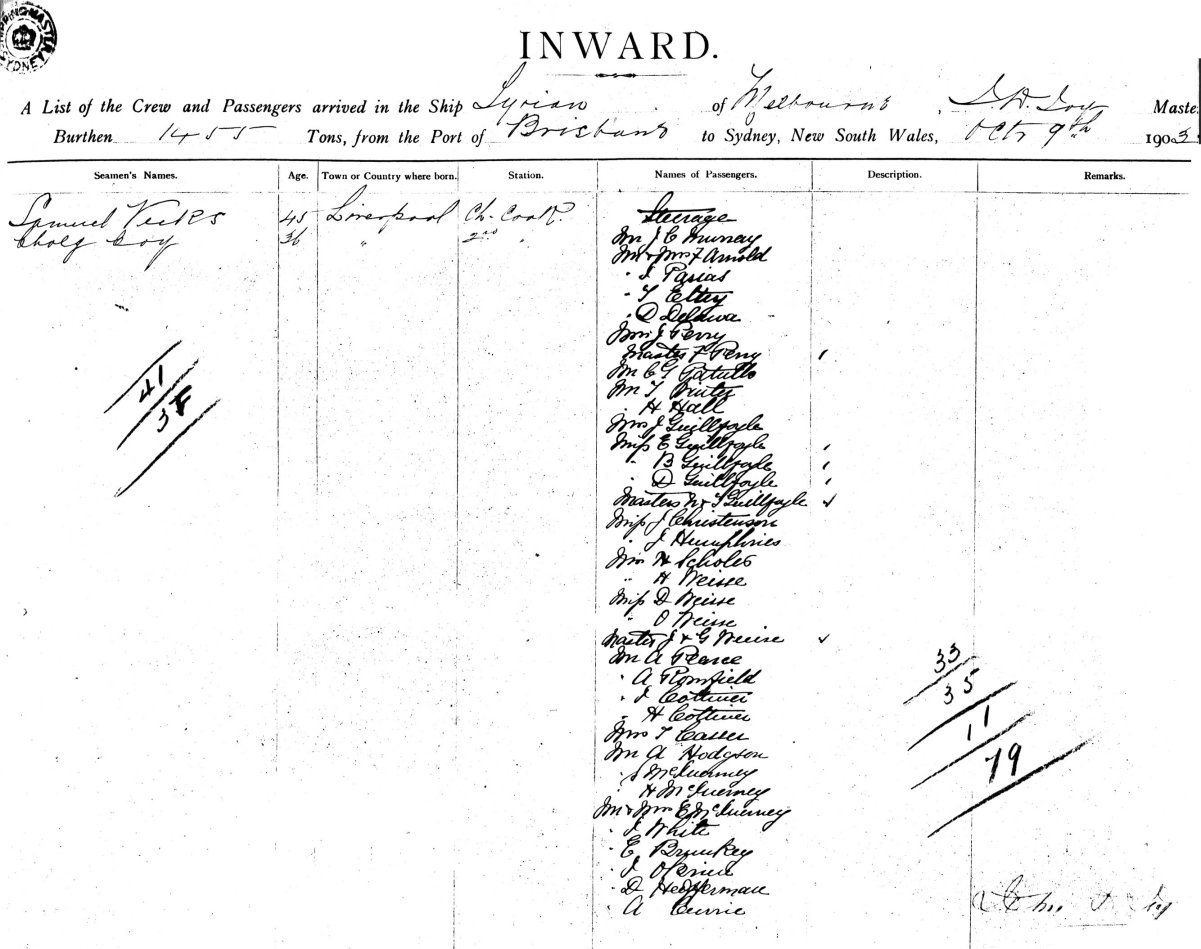 SHIPPING MASTER SYDNEY
INWARD.
A List of the Crew and Passengers arrived in the Ship Syrian of Melbourne, Maste
Burthen 1455 Tons, from the Port of Brisbane to Sydney, New South Wales, Octr 9th 1903
Seamen's Names. Age. Town or Country where born. Station. Names of Passengers. Description. Remarks.
Samuel 45 Liverpool Ch. Cook. Steerage
36 " 2nd "
Mr J C Murray
Mr & Mrs F Arnold
" J Parias
" T Eltey
" D
Mrs J Perry
Master F Perry
Mr C G Patullo
Mr T
" H Hall
Mrs J Guillfoyle
Miss E Guillfoyle
" B Guillfoyle
" D Guillfoyle
Masters & T Guillfoyle
Miss J Christenson
" J Humphries
Mrs H Scholes
" H Weisse
Miss D Weisse
" O Weisse
Master J & G Weisse
Mr A Pearce
" A Romfield
" J Cottiver
" H Cottiver
Mrs T
Mr A Hodgson
" J McInerney
" H McInerney
Mr & Mrs E McInerney
" J White
" E
" J
" D Heffernan
" A Currie
41
38
33
35
11
79